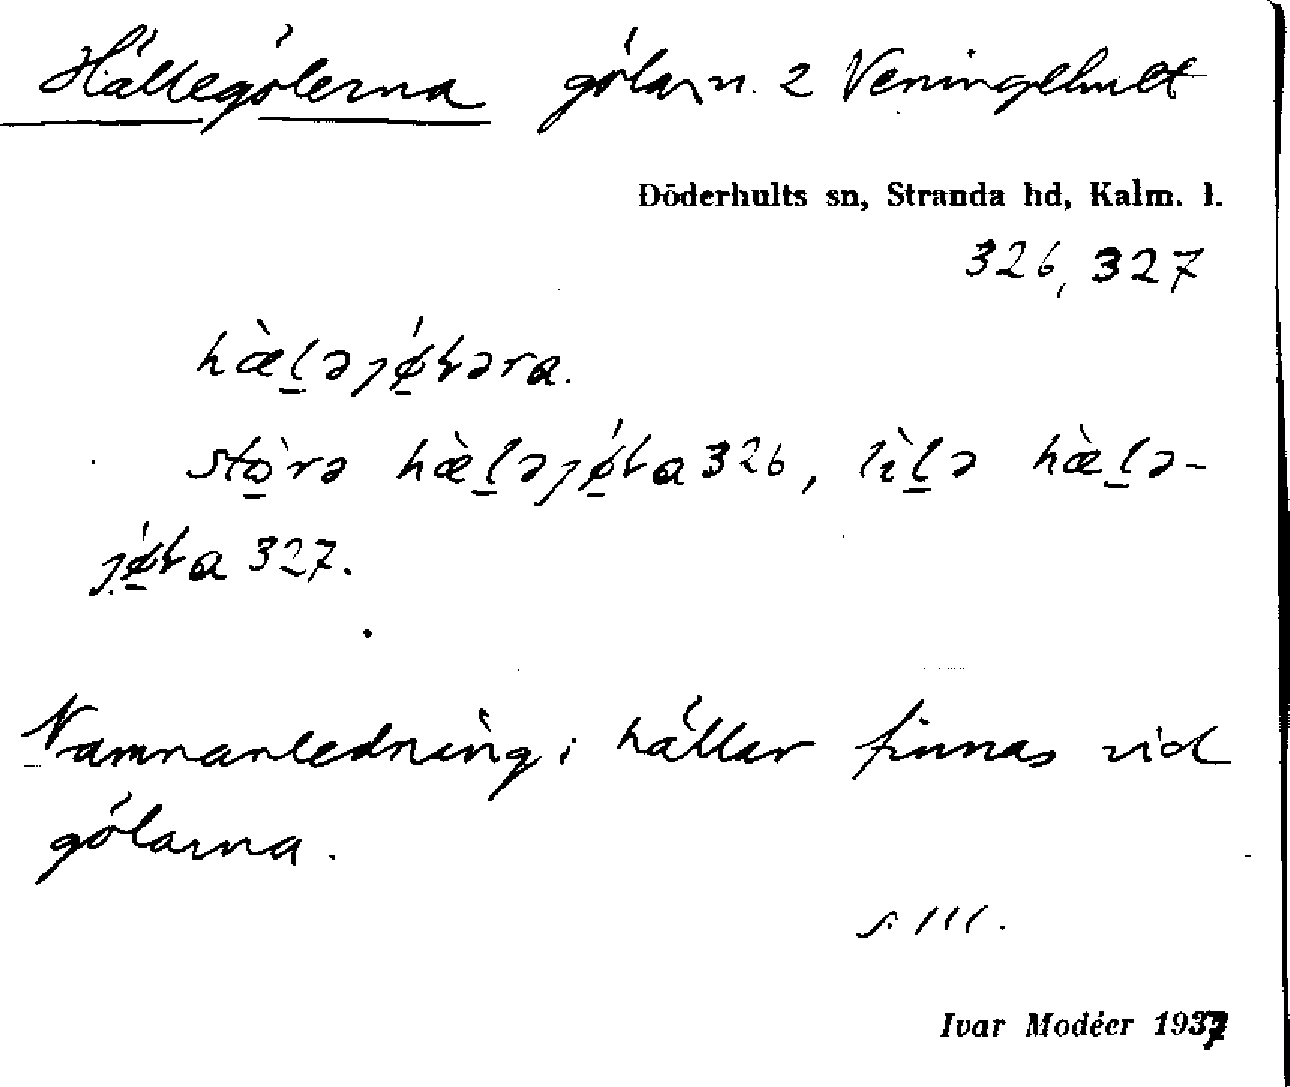 Hällegölerna gölar n. 2 Veningehult
Döderhults sn, Stranda hd, Kalm. l.
326, 327
hæ̀l̲əjǿ̲ɫəra.
stò̲rə hæ̀l̲əjǿ̲ɫa 326, lìl̲ə hæ̀l̲ə-
jǿ̲ɫa 327.
Namnanledning; hällar finnas vid
gölarna.
s. 111.
Ivar Modéer 1937